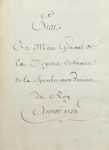 Etat
De Mau General de
la Depense ordinaire
de la Chambre aux Deniers
du Roy
Année